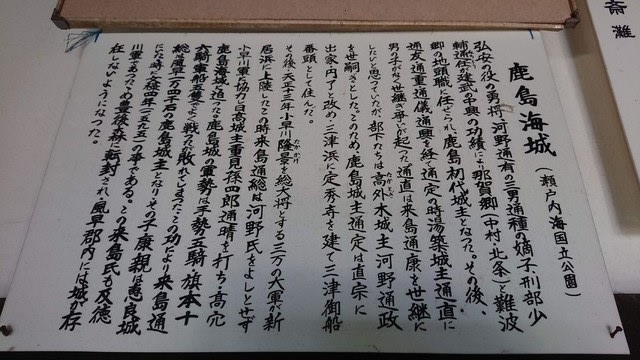 斎灘
鹿島海城（瀬戸内海国立公園）
弘安の役の勇将、河野通有の三男通種の嫡子、刑部少
輔通任は建武の中興の功績により那賀郷（中村・北条）・難波
郷の地頭職に任ぜられ、鹿島初代城主となった。その後、
通友・通重・通儀・通興を経て通定の時湯築城主通直に
男の子がなく世継ぎ争いが起った。通直は来島通康を世継に
したいと思っていたが、部下たちは高外木城主河野通政
を世嗣ぎとした。このため、鹿島城主通定は直宗に
出家円了と改め・三津浜に定秀寺を建て三津御船
番頭として住んだ。
その後、天正十三年小早川隆景を総大将とする三万の大軍が新
居浜に上陸した。この時来島通総は河野氏をよしとせず
小早川軍に協力、日高城主重見孫四郎通晴を打ち・高穴
鹿島海城へ迫った。鹿島城の軍勢は手勢五騎・旗本十
六騎軍船五隻でよく戦ったが敗れてしまった。この功により来島通
総は風早一万四千石の鹿島城主となり、その子康親は恵良城
になった時に文禄四年（一五九五）の事である。この来島氏も反徳
川軍となったため豊後の森に転封され、風早郡内には城が存
在しないようになった。